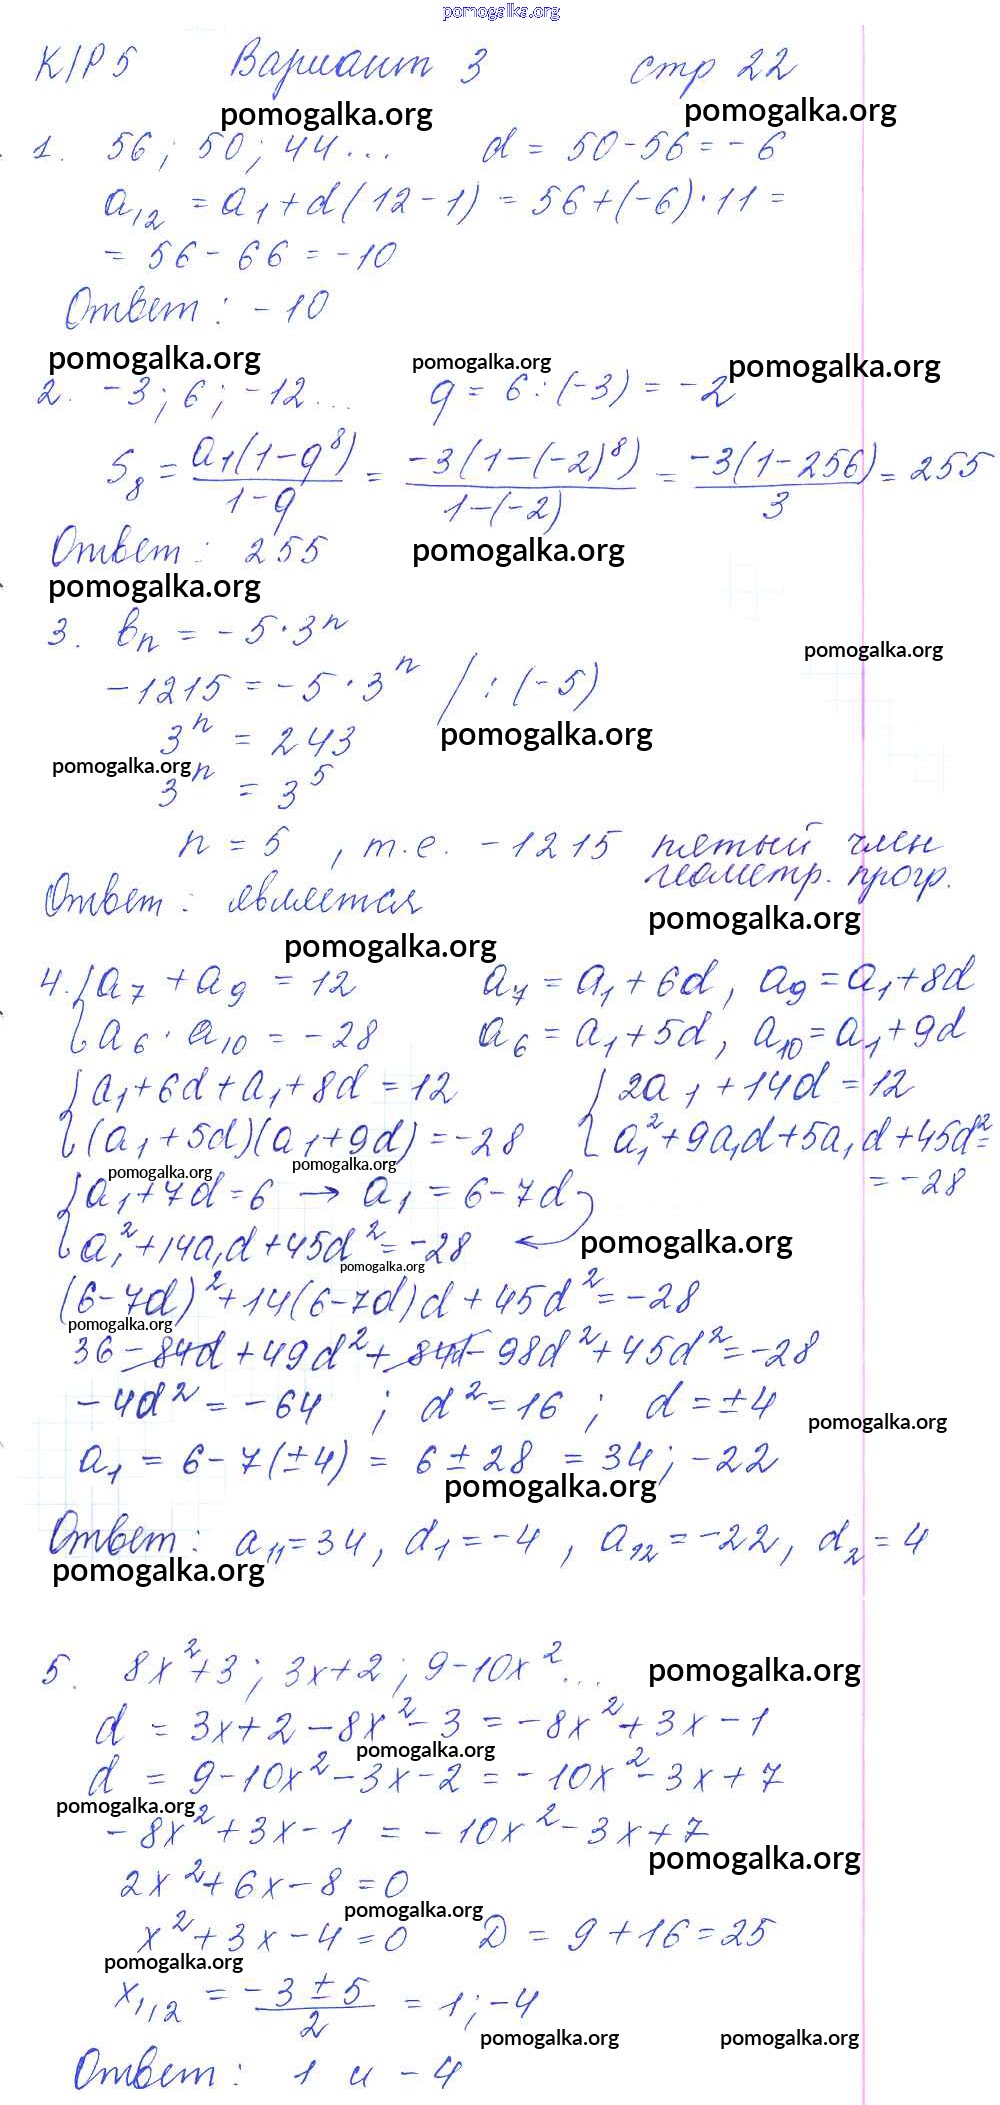 pomogalka.org
К/Р 5 Вариант 3 стр 22
pomogalka.org pomogalka.org
1. 56; 50; 44... d = 50-56 = -6
a₁₂ = a₁+d(12-1) = 56+(-6)·11 =
= 56-66 = -10
Ответ: -10
pomogalka.org pomogalka.org pomogalka.org
2. -3; 6; -12... q = 6:(-3) = -2
S₈ = a₁(1-q⁸)/(1-q) = -3(1-(-2)⁸)/(1-(-2)) = -3(1-256)/3 = 255
Ответ: 255 pomogalka.org
pomogalka.org
3. bₙ = -5·3ⁿ
pomogalka.org
-1215 = -5·3ⁿ /:(-5)
3ⁿ = 243 pomogalka.org
pomogalka.org
3ⁿ = 3⁵
n = 5, т.е. -1215 пятый член
геометр. прогр.
Ответ: является
pomogalka.org
pomogalka.org
4. { a₇ + a₉ = 12 a₇ = a₁+6d, a₉ = a₁+8d
a₆ · a₁₀ = -28 a₆ = a₁+5d, a₁₀ = a₁+9d
{ a₁+6d+a₁+8d = 12 { 2a₁+14d = 12
(a₁+5d)(a₁+9d) = -28 a₁²+9a₁d+5a₁d+45d² =
pomogalka.org pomogalka.org
= -28
{ a₁+7d=6 → a₁ = 6-7d
a₁²+14a₁d+45d² = -28 ← pomogalka.org
pomogalka.org
(6-7d)²+14(6-7d)d+45d² = -28
pomogalka.org
36-84d+49d²+84d-98d²+45d² = -28
-4d² = -64 ; d² = 16 ; d = ±4
pomogalka.org
a₁ = 6-7(±4) = 6±28 = 34; -22
pomogalka.org
Ответ: a₁₁=34, d₁=-4, a₁₂=-22, d₂=4
pomogalka.org
5. 8x²+3; 3x+2; 9-10x²... pomogalka.org
d = 3x+2-8x²-3 = -8x²+3x-1
pomogalka.org
d = 9-10x²-3x-2 = -10x²-3x+7
pomogalka.org
-8x²+3x-1 = -10x²-3x+7
pomogalka.org
2x²+6x-8=0
pomogalka.org
x²+3x-4=0 D = 9+16=25
pomogalka.org
x₁,₂ = (-3±5)/2 = 1; -4
pomogalka.org pomogalka.org
Ответ: 1 и -4